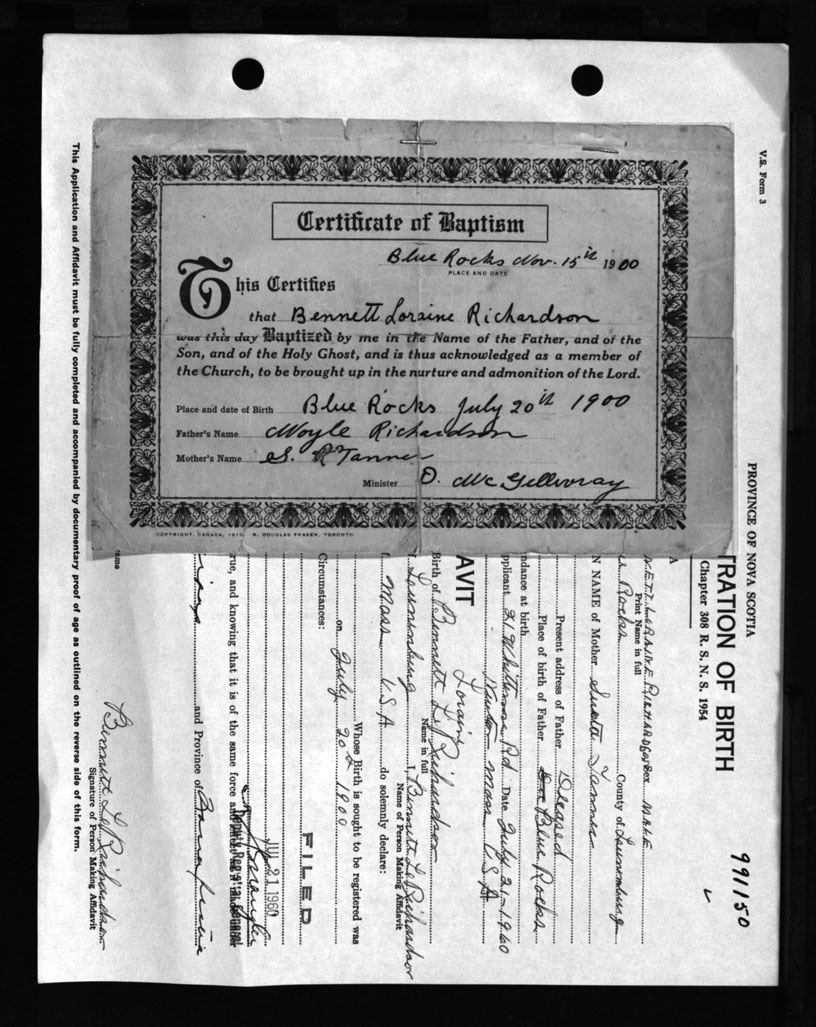 Certificate of Baptism
Blue Rocks Nov. 15th 1900
PLACE AND DATE
This Certifies
that Bennett Loraine Richardson
was this day Baptized by me in the Name of the Father, and of the
Son, and of the Holy Ghost, and is thus acknowledged as a member of
the Church, to be brought up in the nurture and admonition of the Lord.
Place and date of Birth Blue Rocks July 20th 1900
Father's Name Moyle Richardson
Mother's Name S. R Tanner
Minister D. McGillivray
COPYRIGHT, CANADA, 1910 R. DOUGLAS FRASER, TORONTO
V.S. Form 3
PROVINCE OF NOVA SCOTIA
991150
TRATION OF BIRTH
Chapter 308 R. S. N. S. 1954
RICHARDSON Sex MALE
Print Name in full
Rocks County of Lunenburg
N NAME of Mother Tanner
Present address of Father Deceased
Place of birth of Father Blue Rocks
ndance at birth
pplicant 21 Rd Date July 21-1960
Mass USA
AVIT
Loraine
Birth of Bennett L. Richardson
Name in full
Lunenburg I, Bennett L. Richardson
Name of Person Making Affidavit
Mass USA do solemnly declare:
Whose Birth is sought to be registered was
on July 20th 1900
Circumstances:
FILED
JUL 21 1960
Deputy Registrar General
rue, and knowing that it is of the same force
and Province of
Bennett L. Richardson
Signature of Person Making Affidavit
This Application and Affidavit must be fully completed and accompanied by documentary proof of age as outlined on the reverse side of this form.